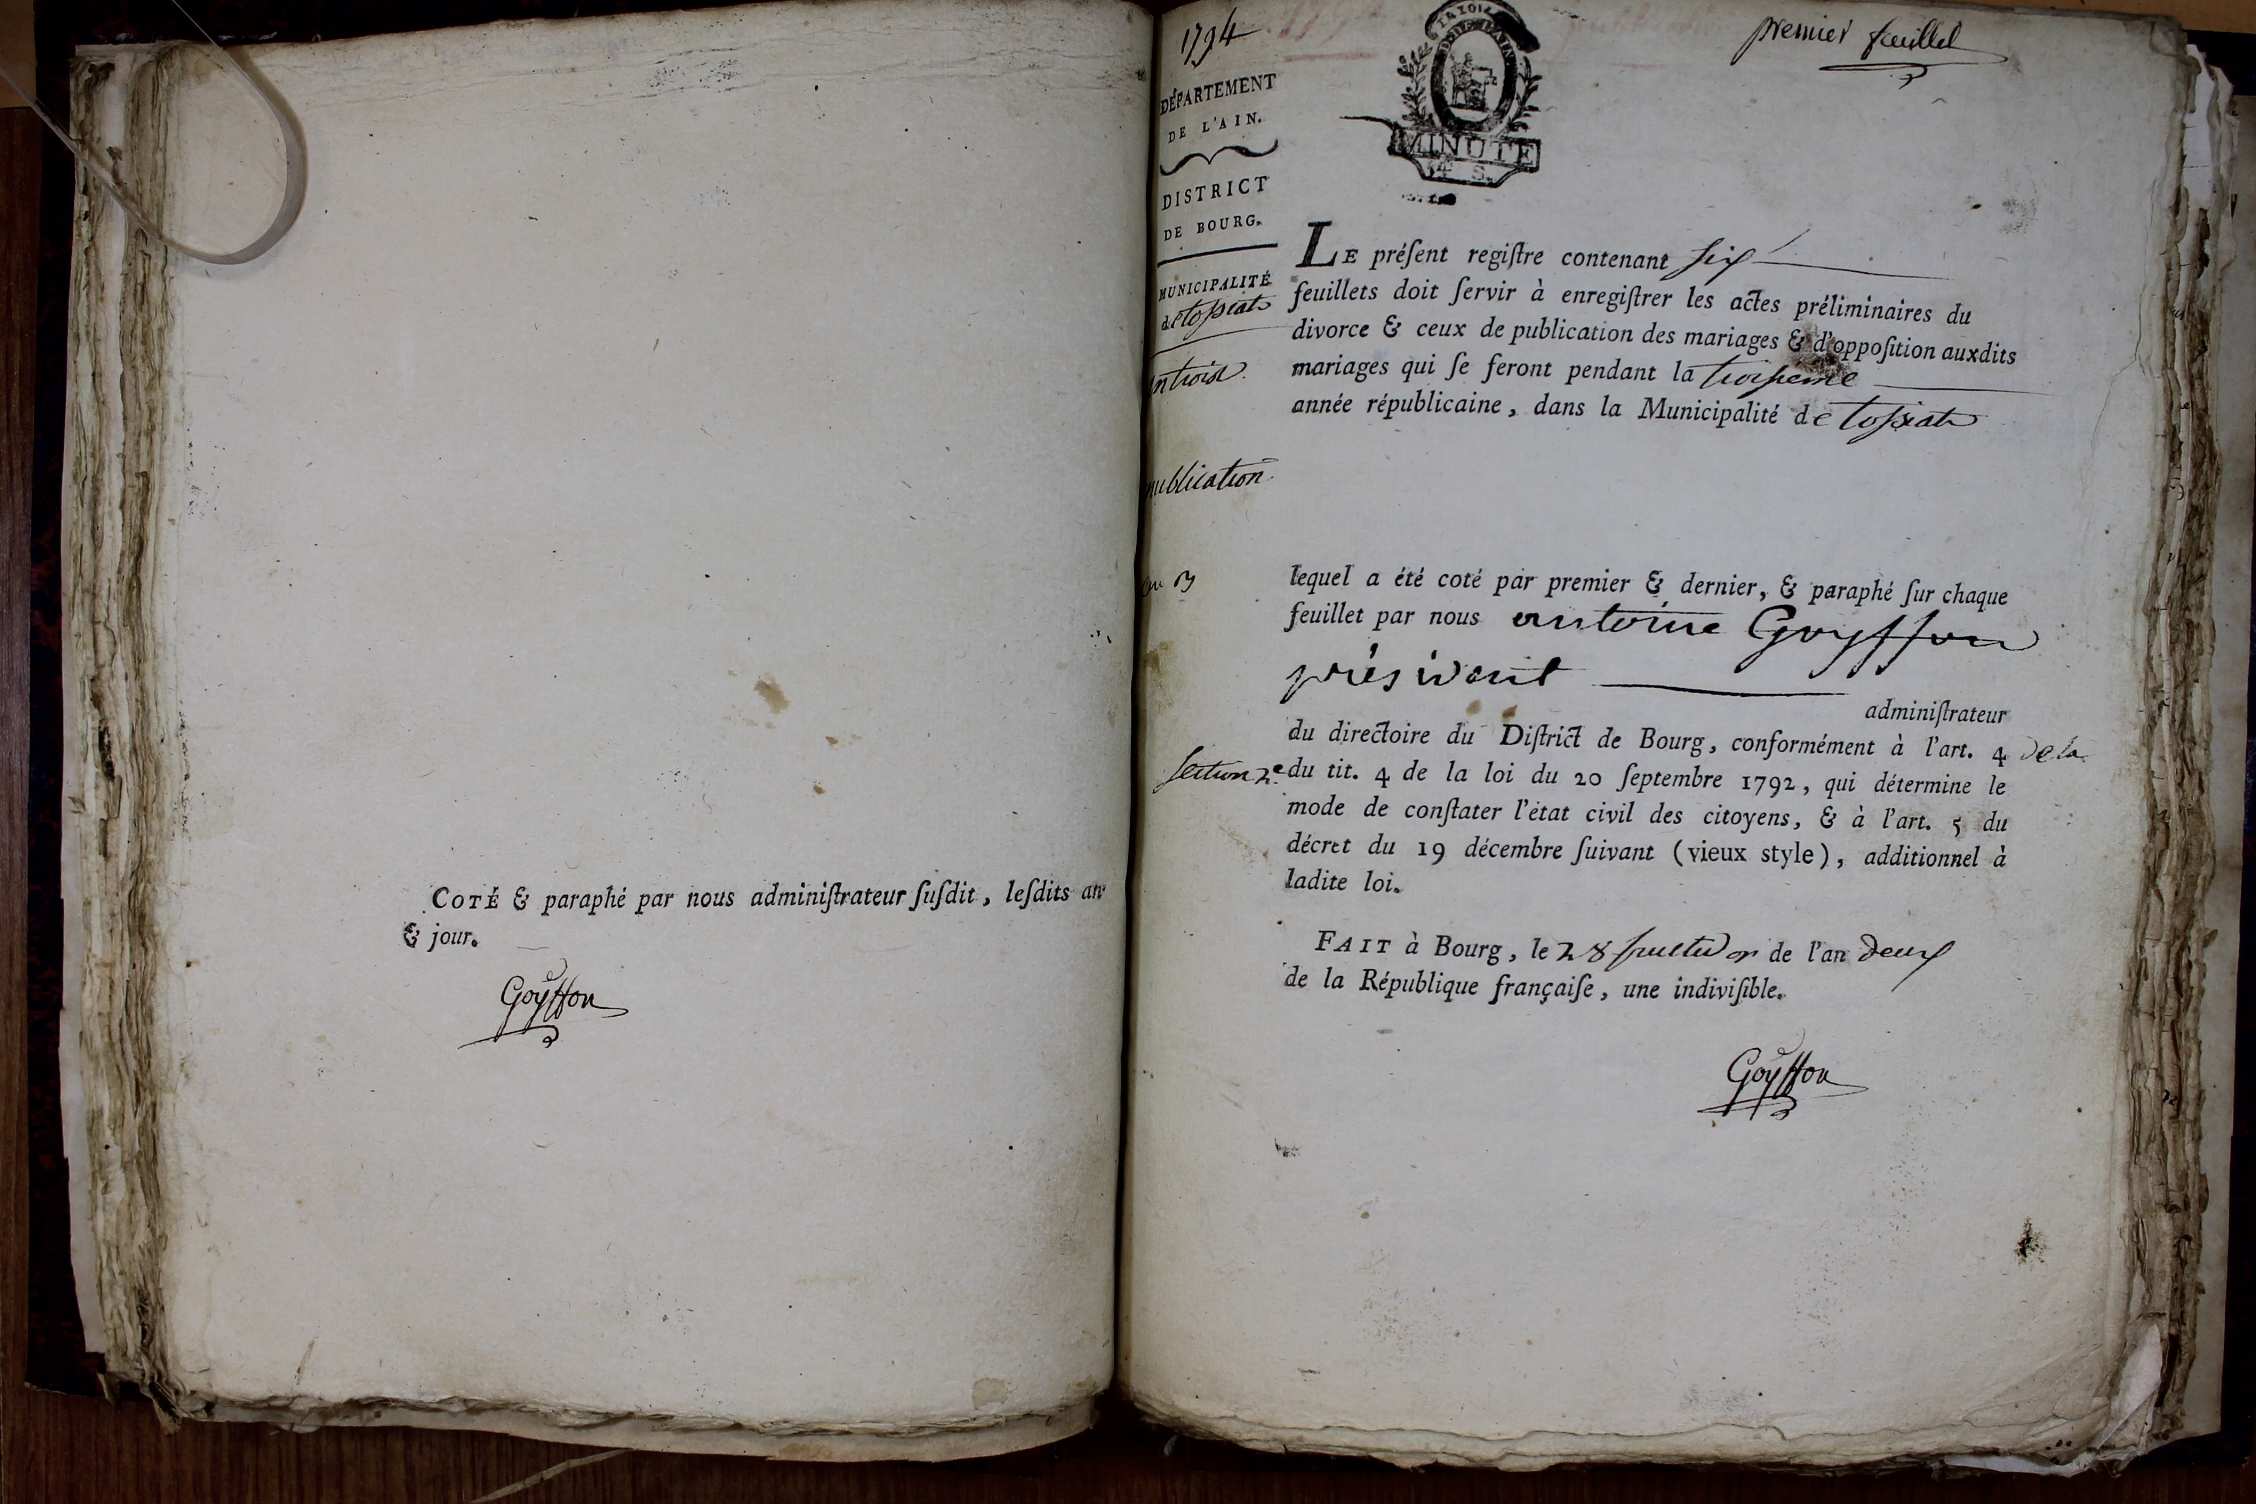 COTÉ & paraphé par nous adminiſtrateur ſuſdit, leſdits an
& jour.
Goyffon
1794
premier feuillet
DÉPARTEMENT
DE L'AIN.
DISTRICT
DE BOURG.
MUNICIPALITÉ
de toſsiat
an trois
publication
MINUTE
4 S.
LE préſent regiſtre contenant ſix
feuillets doit ſervir à enregiſtrer les actes préliminaires du
divorce & ceux de publication des mariages & d'oppoſition auxdits
mariages qui ſe feront pendant la troiſieme
année républicaine, dans la Municipalité de toſsiat
lequel a été coté par premier & dernier, & paraphé ſur chaque
feuillet par nous antoine Goyffon
président
adminiſtrateur
du directoire du Diſtrict de Bourg, conformément à l'art. 4 de la
ſection 2e du tit. 4 de la loi du 20 ſeptembre 1792, qui détermine le
mode de conſtater l'état civil des citoyens, & à l'art. 5 du
décret du 19 décembre ſuivant (vieux style), additionnel à
ladite loi.
FAIT à Bourg, le 28 fructidor de l'an deux
de la République françaiſe, une indiviſible.
Goyffon